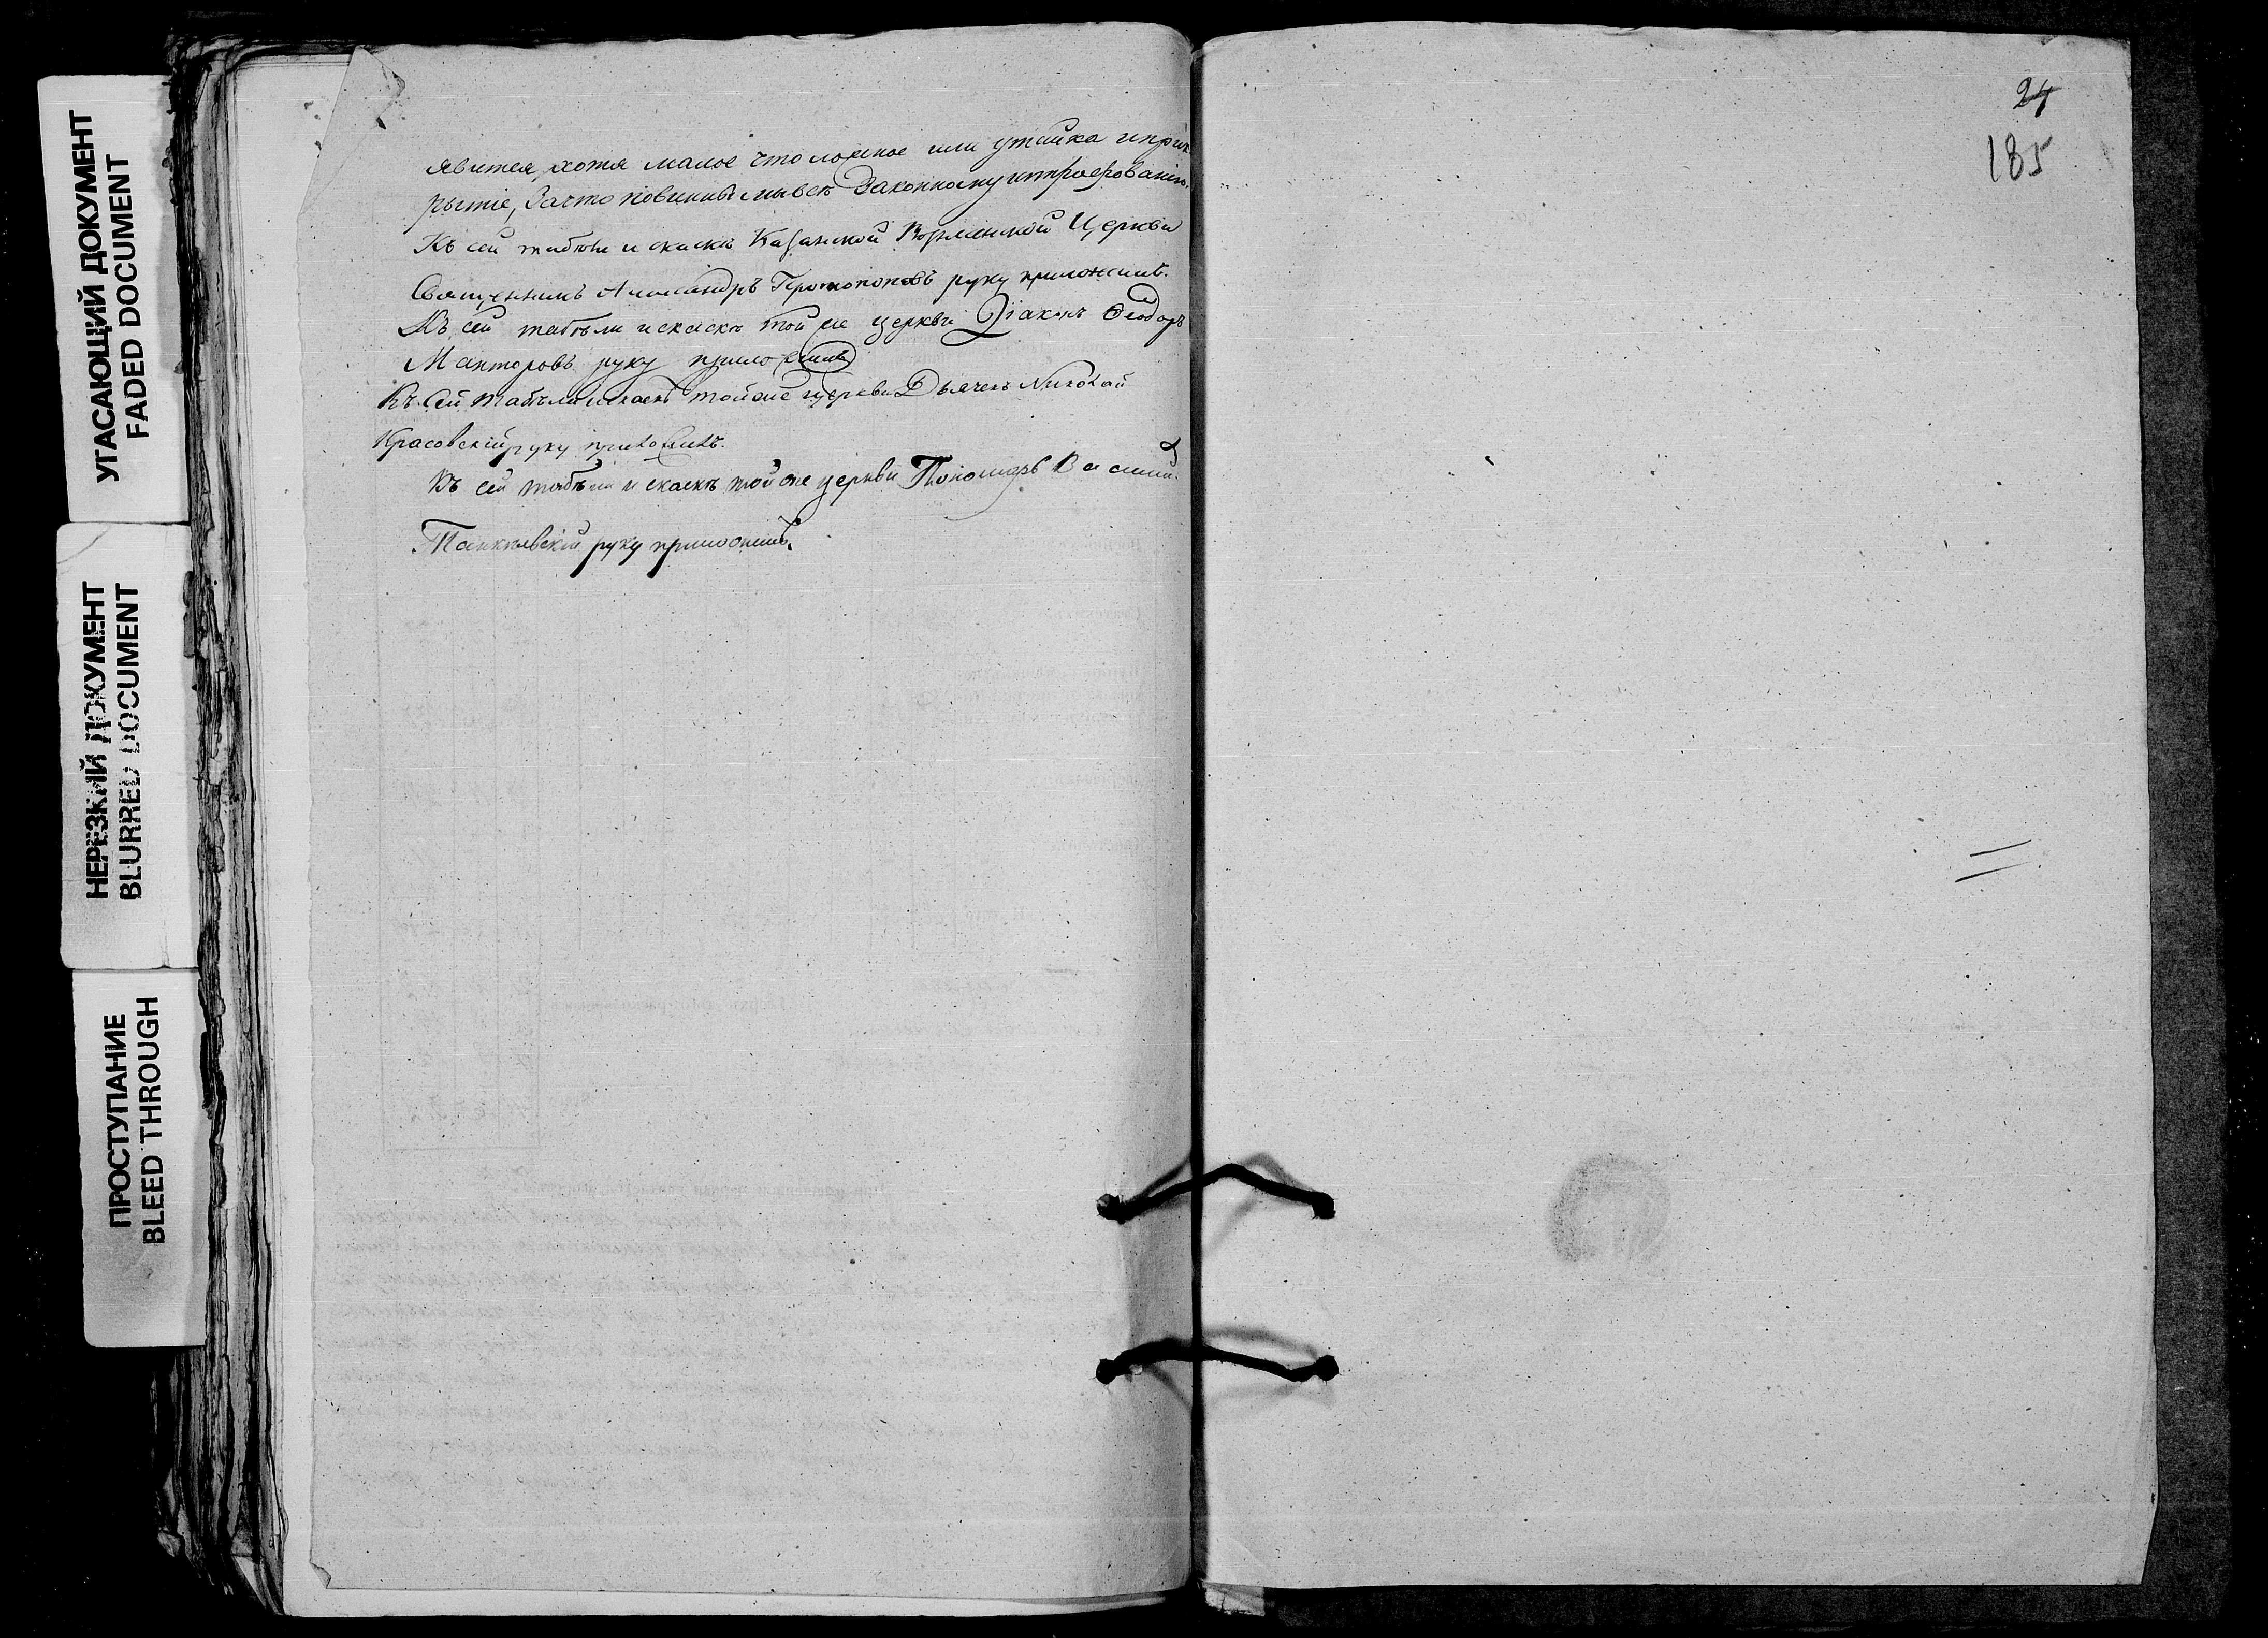 УГАСАЮЩИЙ ДОКУМЕНТ
FADED DOCUMENT
НЕРЕЗКИЙ ДОКУМЕНТ
BLURRED DOCUMENT
ПРОСТУПАНИЕ
BLEED THROUGH
явится, хотя малое что ложное или утайка и прик
рытiе, За что повинны мы всѣ Законному штрафованiю.
Къ сей табѣли и скаскѣ Казанской Церкви
Священникъ Александръ Протопоповъ руку приложилъ.
Къ сей табѣли и скаскѣ той же церкви Дiаконъ Ѳеодоръ
руку приложилъ
Къ сей табѣли и скаскѣ той же церкви Дьячекъ Николай
Красовскiй руку приложилъ.
Къ сей табѣли и скаскѣ той же церкви Пономарь Василiй
руку приложилъ.
24
185